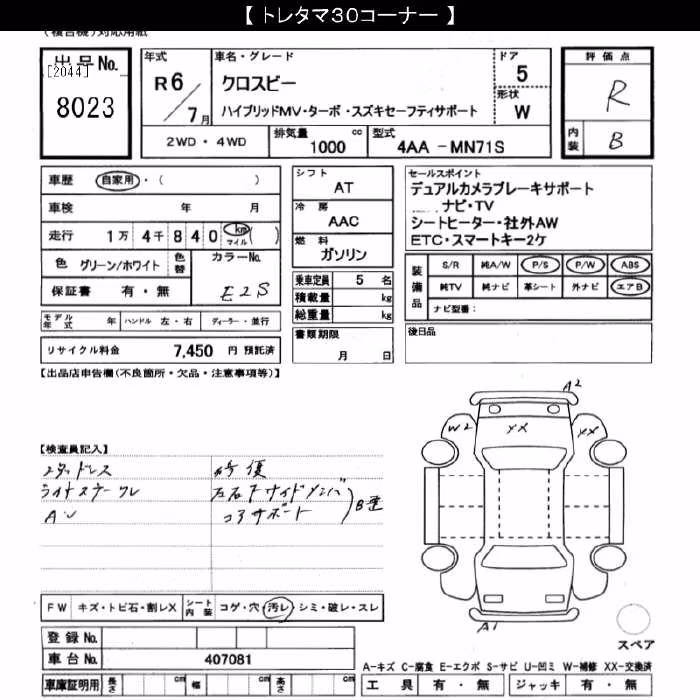 【 トレタマ30コーナー 】
(複合機)対応用紙
出品No.
[2044]
8023
年式
R6/7月
車名・グレード
クロスビー
ハイブリッドMV・ターボ・スズキセーフティサポート
ドア
5
形状
W
2WD・4WD
排気量
1000 cc
型式
4AA - MN71S
評価点
R
内装
B
車歴 自家用・( )
車検 年 月
走行 1万 4千 840 km マイル ( )
色 グリーン/ホワイト
色替
カラーNo.
E2S
保証書 有・無
モデル年式 年
ハンドル 左・右
ディーラー・並行
リサイクル料金 7,450 円 預託済
シフト
AT
冷房
AAC
燃料
ガソリン
乗車定員 5 名
積載量 kg
総重量 kg
書類期限
月 日
セールスポイント
デュアルカメラブレーキサポート
ナビ・TV
シートヒーター・社外AW
ETC・スマートキー2ケ
装備品
S/R 純A/W P/S P/W ABS
純TV 純ナビ 革シート 外ナビ エアB
ナビ型番:
後日品
【出品店申告欄(不良箇所・欠品・注意事項等)】
【検査員記入】
スタッドレス
ライトスクーウレ
A
修復
左右Fサイドメンバ
コアサポート
B歪
A2
W2
XX
XX
A1
スペア
FW キズ・トビ石・割レX
シート内装 コゲ・穴・汚レ・シミ・破レ・スレ
登録No.
車台No. 407081
車庫証明用 長さ cm 幅 cm 高さ cm
A-キズ C-腐食 E-エクボ S-サビ U-凹ミ W-補修 XX-交換済
工具 有・無 ジャッキ 有・無